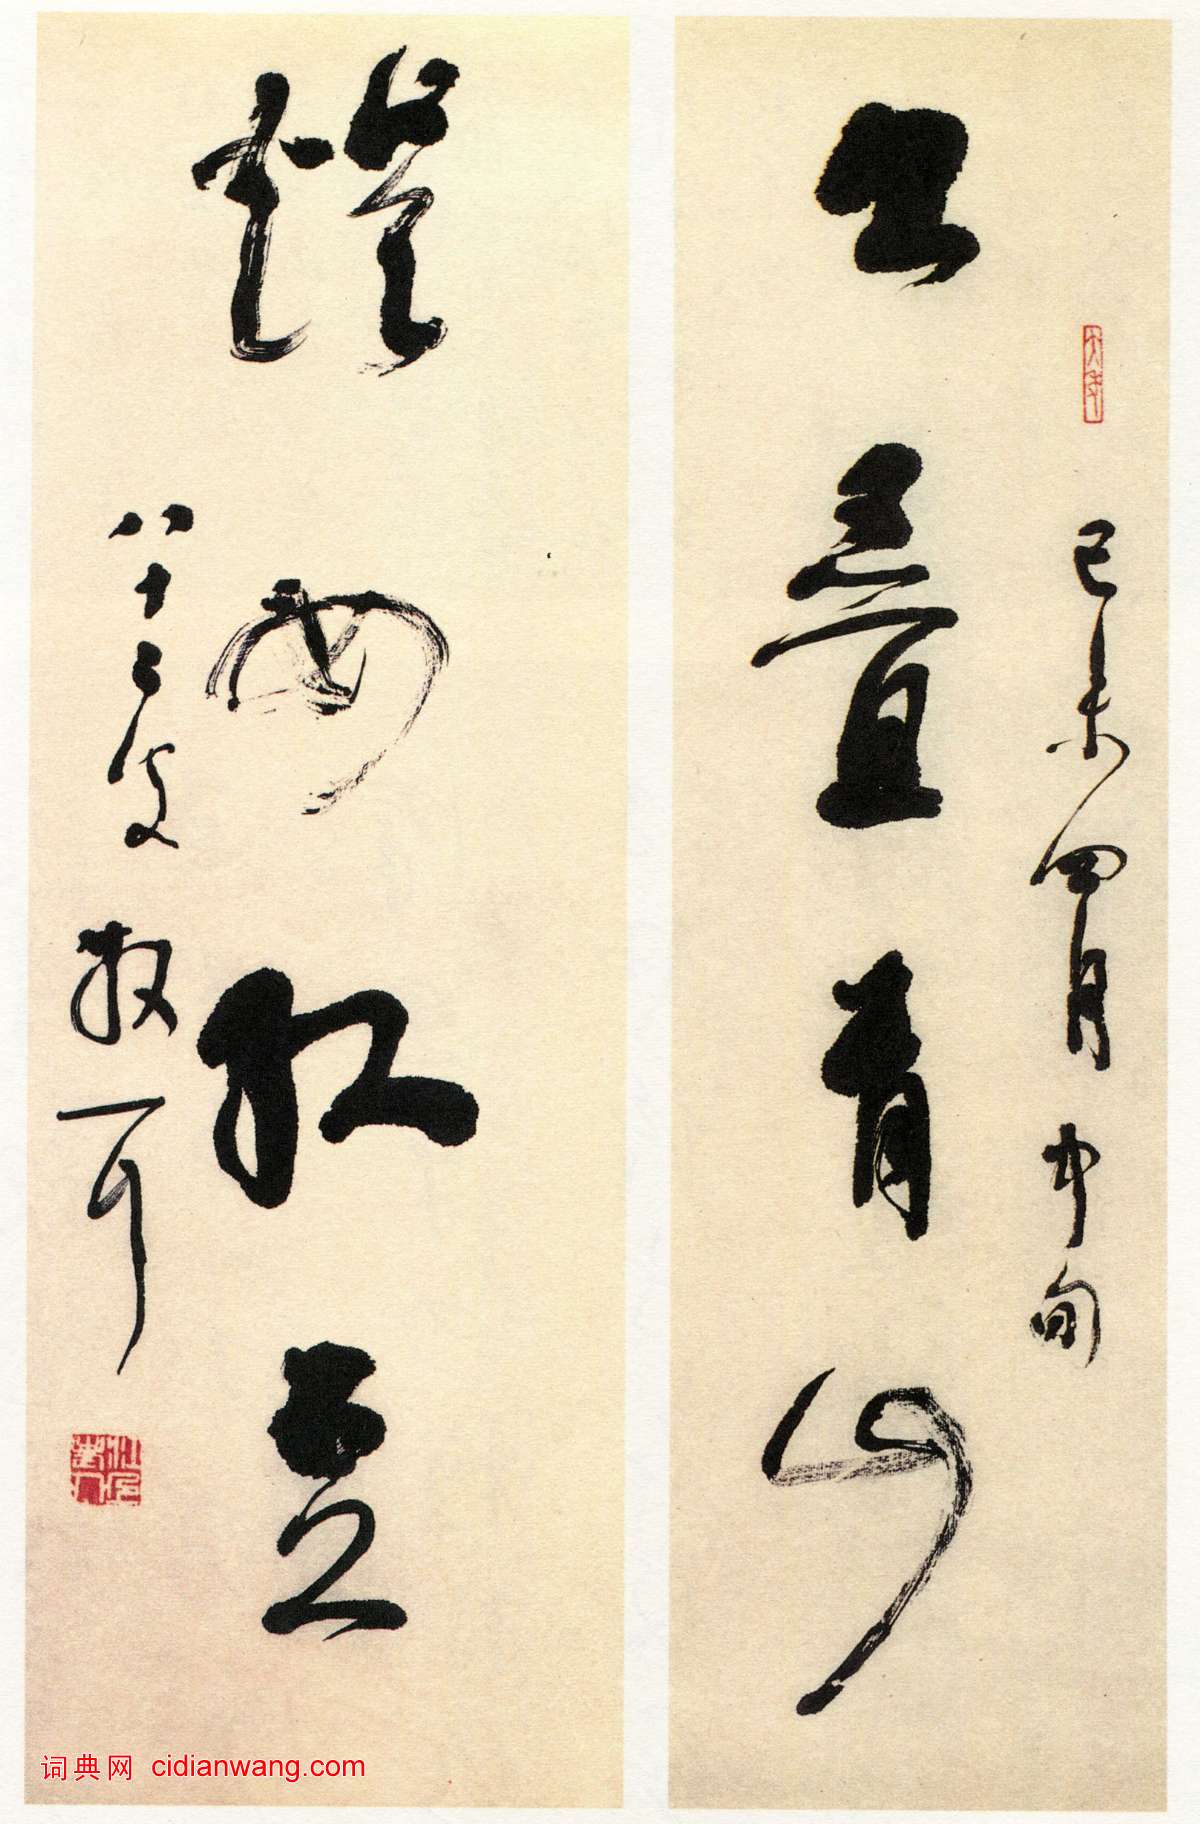 己未四月中旬
书叠青山
灯如红豆
八十三叟散耳
词典网 cidianwang.com